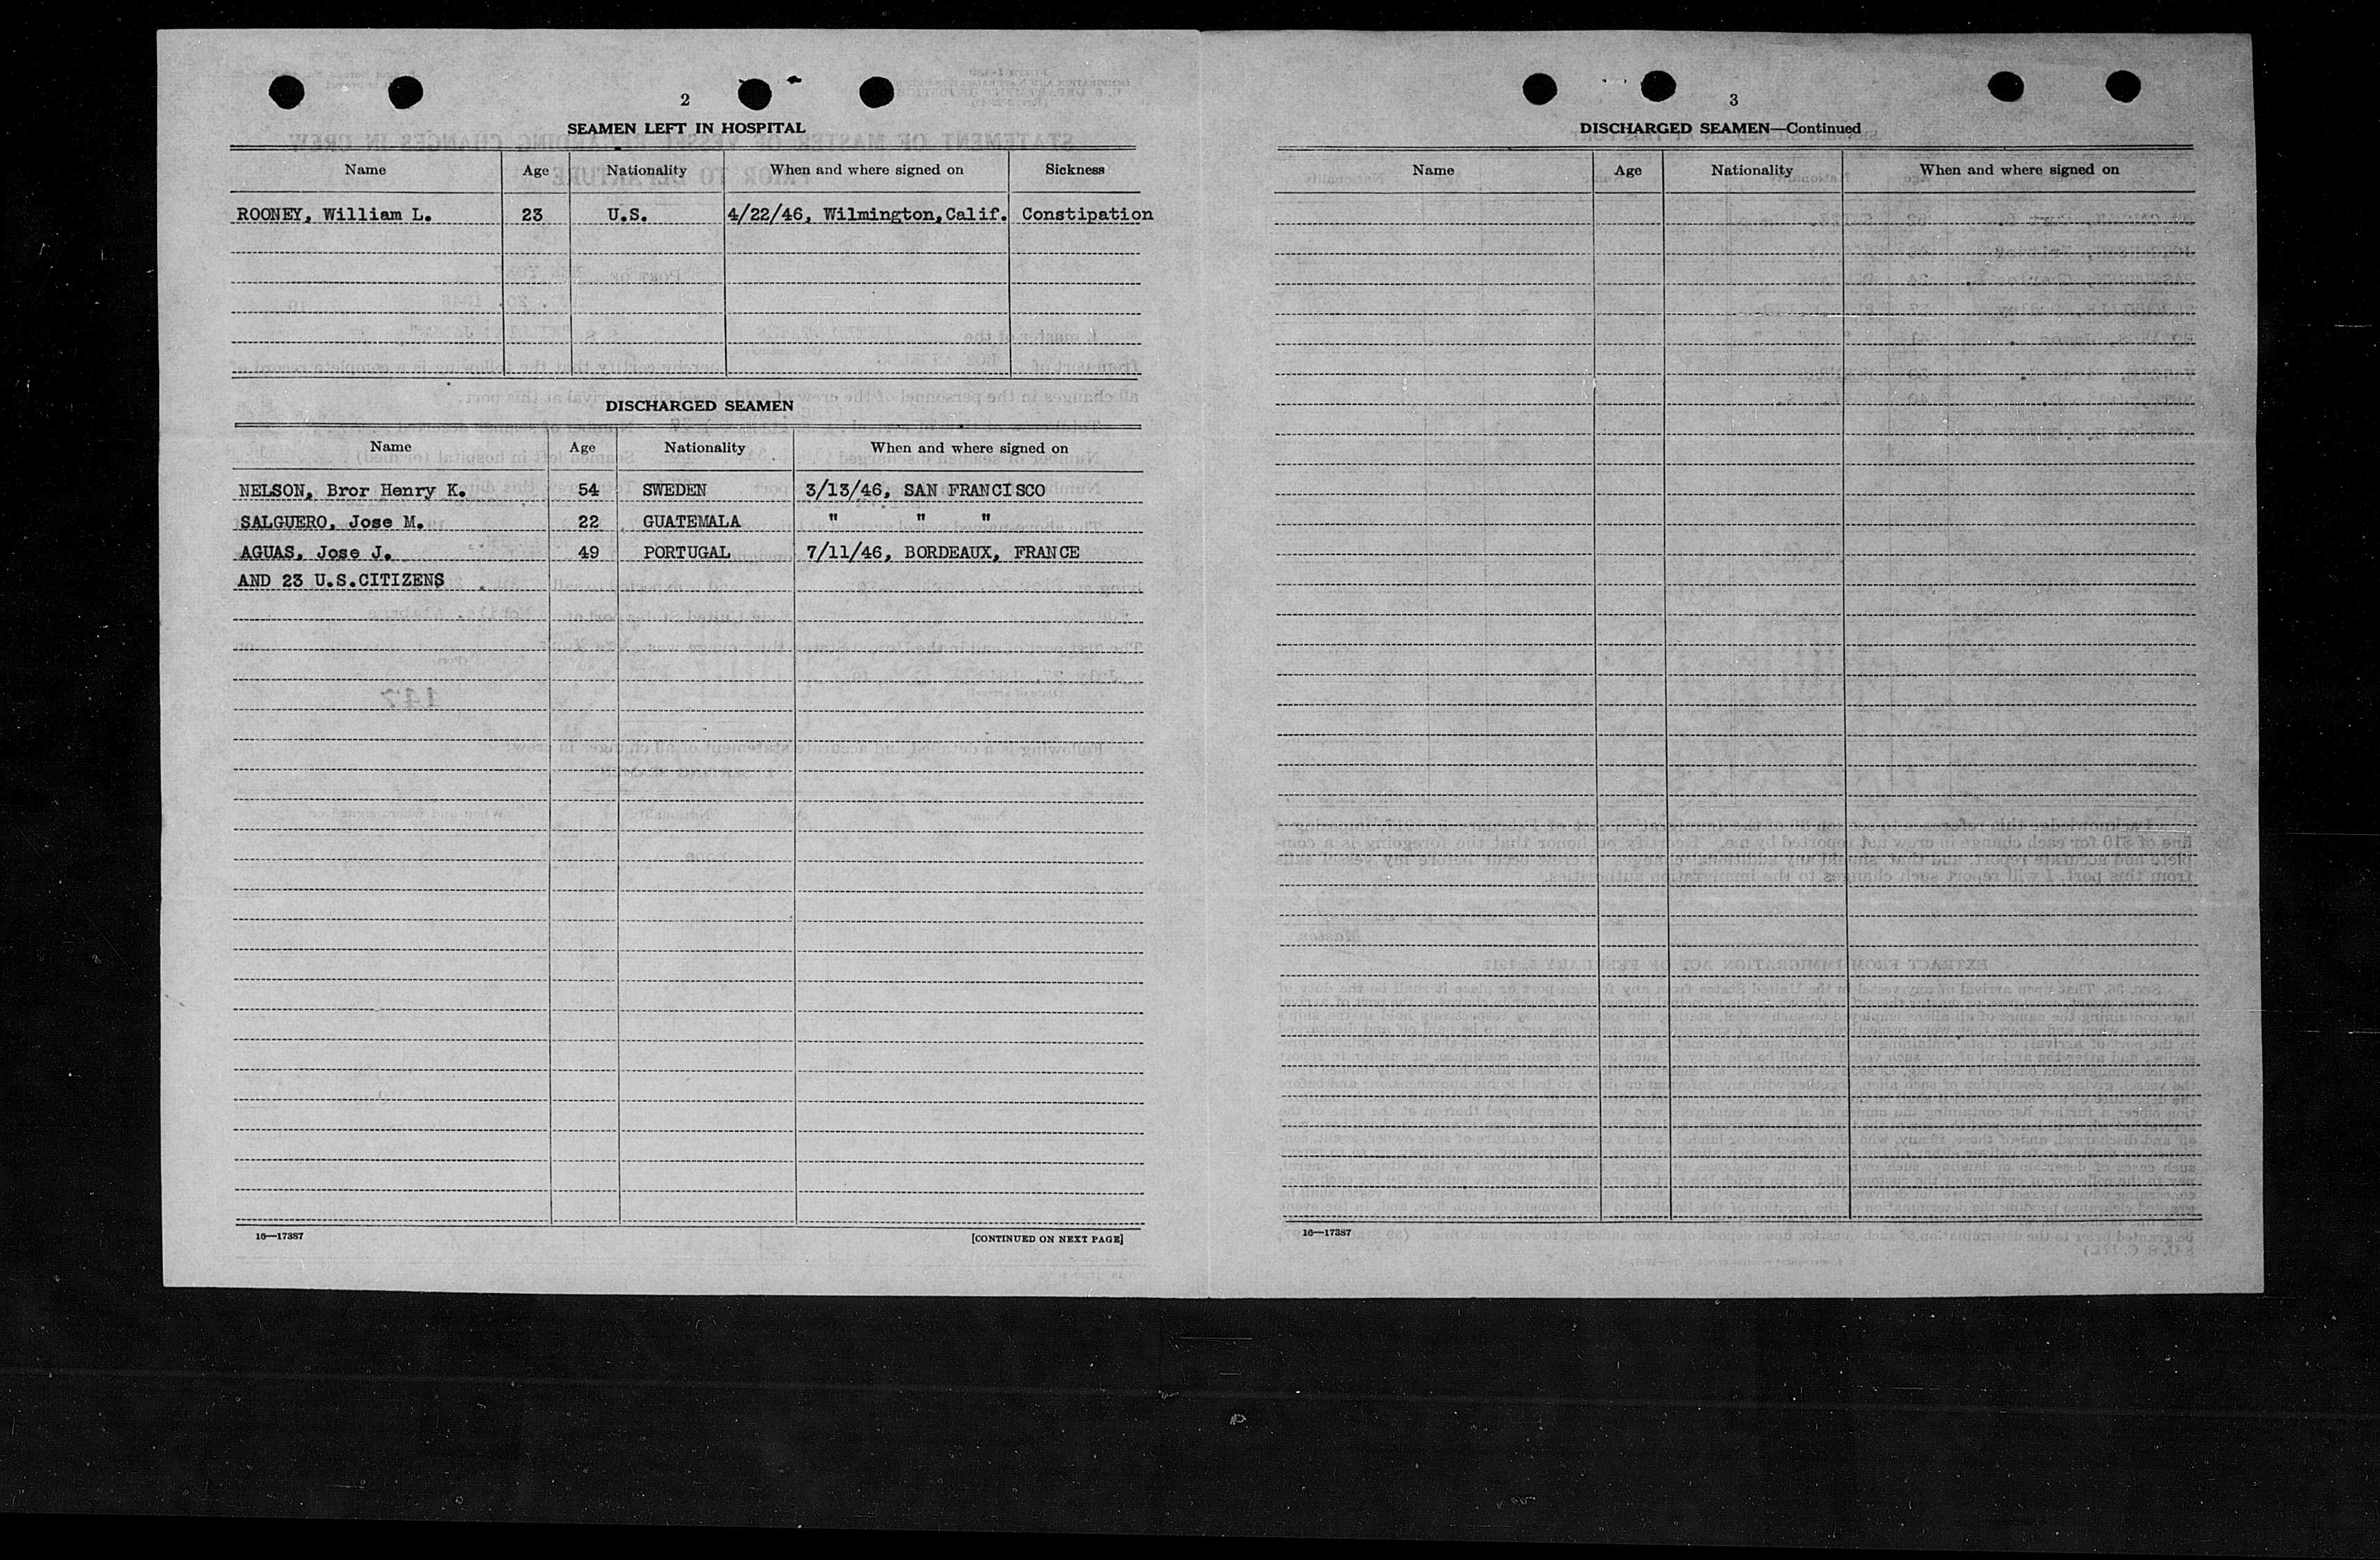 2
SEAMEN LEFT IN HOSPITAL
Name Age Nationality When and where signed on Sickness
ROONEY, William L. 23 U.S. 4/22/46, Wilmington,Calif. Constipation
DISCHARGED SEAMEN
Name Age Nationality When and where signed on
NELSON, Bror Henry K. 54 SWEDEN 3/13/46, SAN FRANCISCO
SALGUERO, Jose M. 22 GUATEMALA " " "
AGUAS, Jose J. 49 PORTUGAL 7/11/46, BORDEAUX, FRANCE
AND 23 U.S.CITIZENS
16—17387 [CONTINUED ON NEXT PAGE]
3
DISCHARGED SEAMEN—Continued
Name Age Nationality When and where signed on
16—17387